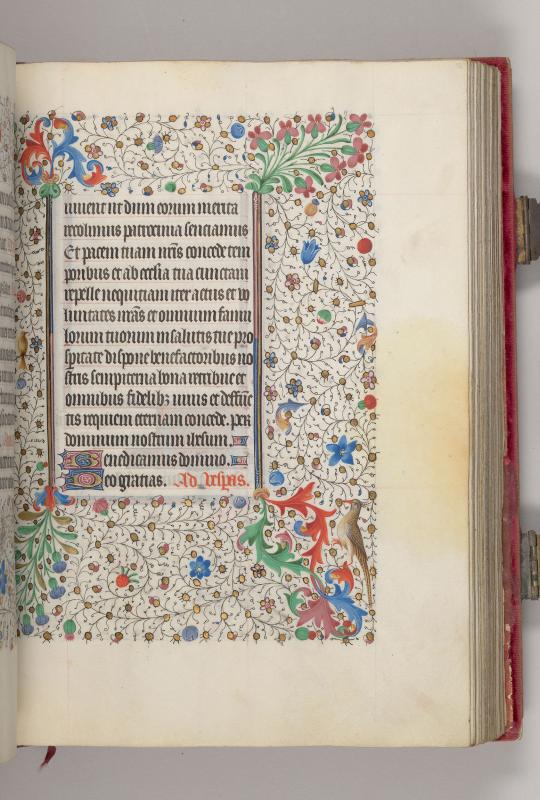 iuuent ut dum eorum merita
recolimus patrocinia senciamus
Et pacem tuam nr̄is concede tem
poribus et ab ecclīa tua cunctam
repelle nequitiam iter actus et vo
luntates nr̄as et omnium famu
lorum tuorum in salutis tue pro
speritate dispone benefactoribus no
stris sempiterna bona retribue et
omnibus fidelibꝫ uiuis et defūnc
tis requiem eternam concede. per
dominum nostrum ih̄esum.
Benedicamus domino.
Deo gratias. Ad vesp̄as.